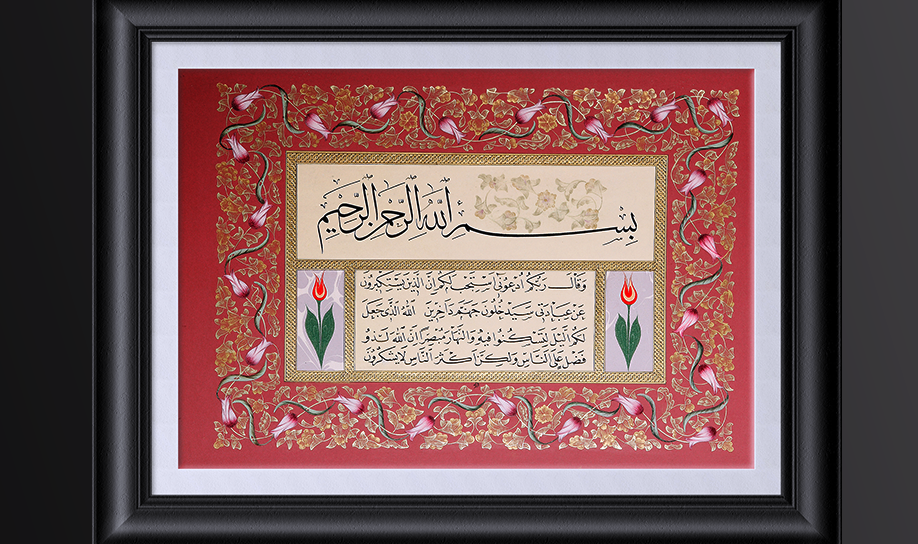 بِسْمِ اللّٰهِ الرَّحْمٰنِ الرَّحِيمِ
وَقَالَ رَبُّكُمُ ادْعُونِي أَسْتَجِبْ لَكُمْ إِنَّ الَّذِينَ يَسْتَكْبِرُونَ
عَنْ عِبَادَتِي سَيَدْخُلُونَ جَهَنَّمَ دَاخِرِينَ اللّٰهُ الَّذِي جَعَلَ
لَكُمُ الَّيْلَ لِتَسْكُنُوا فِيهِ وَالنَّهَارَ مُبْصِرًا إِنَّ اللّٰهَ لَذُو
فَضْلٍ عَلَى النَّاسِ وَلٰكِنَّ أَكْثَرَ النَّاسِ لَا يَشْكُرُونَ